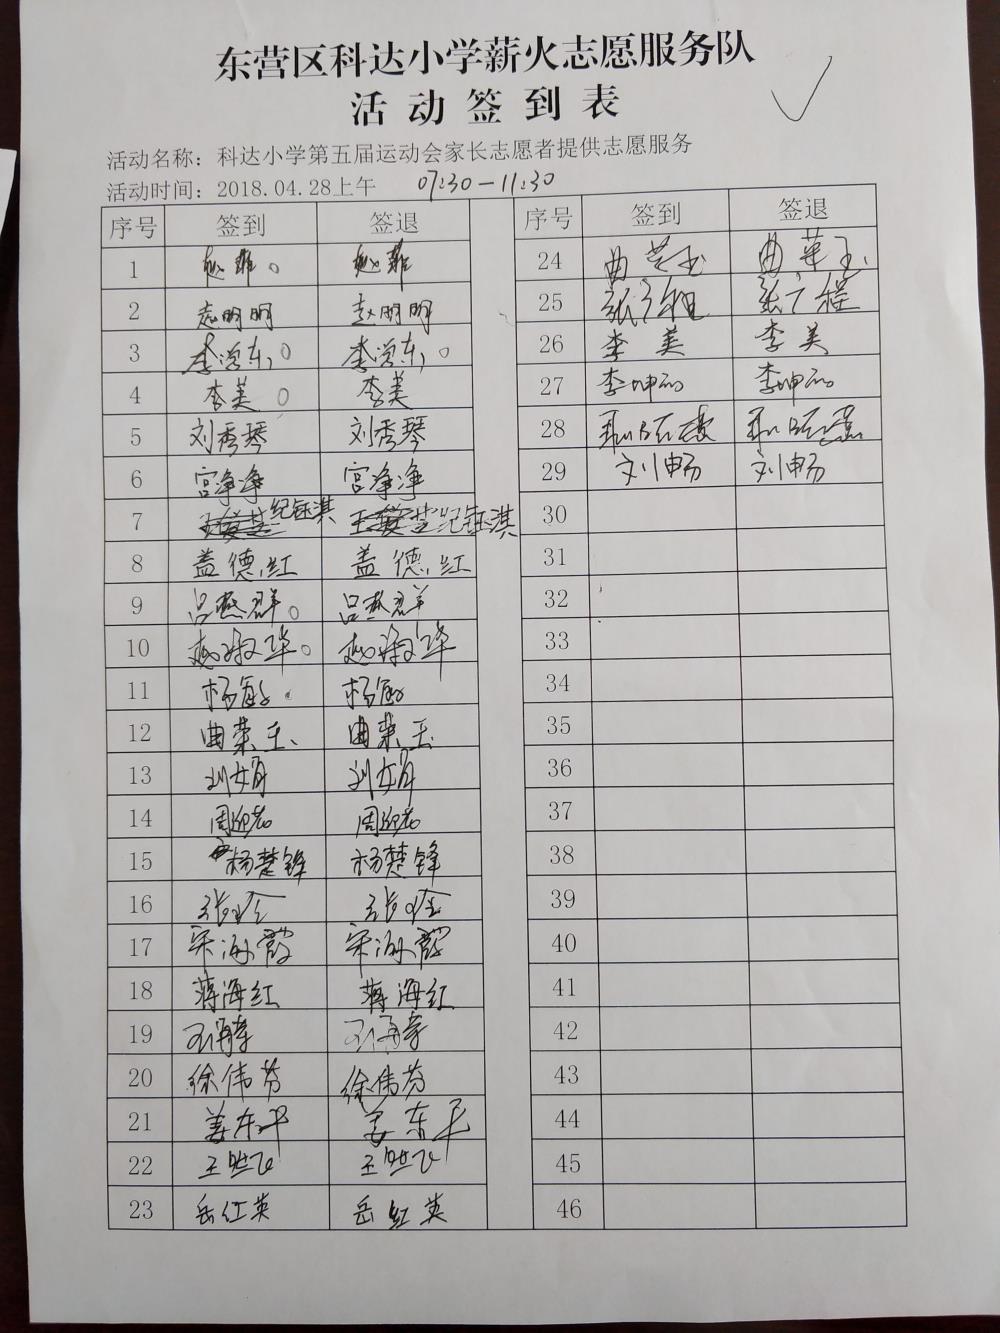 东营区科达小学薪火志愿服务队
活动签到表
活动名称：科达小学第五届运动会家长志愿者提供志愿服务
活动时间：2018.04.28上午 07:30-11:30
序号 签到 签退
1
2 赵明明 赵明明
3
4 李美 李美
5 刘秀琴 刘秀琴
6 宫净净 宫净净
7 纪钰淇 纪钰淇
8 盖德红 盖德红
9 吕燕群 吕燕群
10 赵淑华 赵淑华
11 杨敏 杨敏
12 曲荣玉 曲荣玉
13 刘娟 刘娟
14
15 杨楚锋 杨楚锋
16
17 宋海霞 宋海霞
18 蒋海红 蒋海红
19
20 徐伟芬 徐伟芬
21 姜东平 姜东平
22
23 岳红英 岳红英
序号 签到 签退
24
25 张广程 张广程
26 李美 李美
27
28
29 刘畅 刘畅
30
31
32
33
34
35
36
37
38
39
40
41
42
43
44
45
46